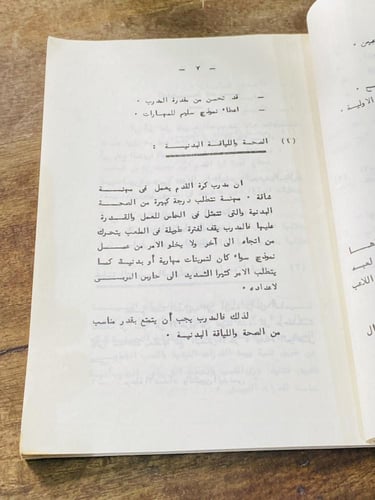 — ٧ —
— قد تحسن من مقدرة المدرب .
— اعطاء نموذج سليم للمهارات .
(٤) الصحة واللياقة البدنية :
ان مدرب كرة القدم يعمل فى مهنة
شاقة . مهنة تتطلب درجة كبيرة من الصحة
البدنية والتى تتمثل فى الحاس للعمل والقدرة
عليها فالمدرب يقف لفترة طويلة فى الملعب يتحرك
من اتجاه الى آخر ولا يخلو الامر من عمل
نموذج سواء كان لتمرينات مهارية أو بدنية كما
يتطلب الامر كثيرا التسديد الى حارس المرمى
لاعداده .
لذلك فالمدرب يجب أن يتمتع بقدر مناسب
من الصحة واللياقة البدنية .
الاولية .
اللاعب